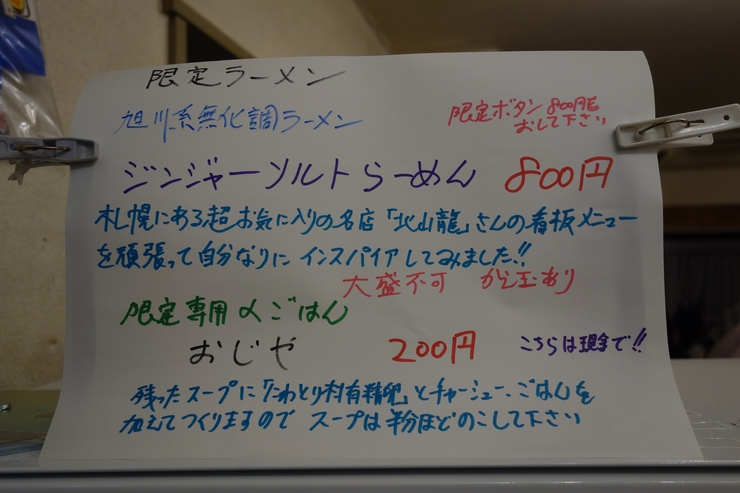 限定ラーメン
旭川系無化調ラーメン
限定ボタン800円を
おして下さい
ジンジャーソルトらーめん 800円
札幌にある超お気に入りの名店「北山龍」さんの看板メニュー
を頑張って自分なりに インスパイアしてみました!!
大盛不可 かえ玉あり
限定専用〆ごはん
おじや 200円 こちらは現金で!!
残ったスープに「にわとり村有精卵」とチャーシュー、ごはんを
加えてつくりますので スープは半分ほどのこして下さい